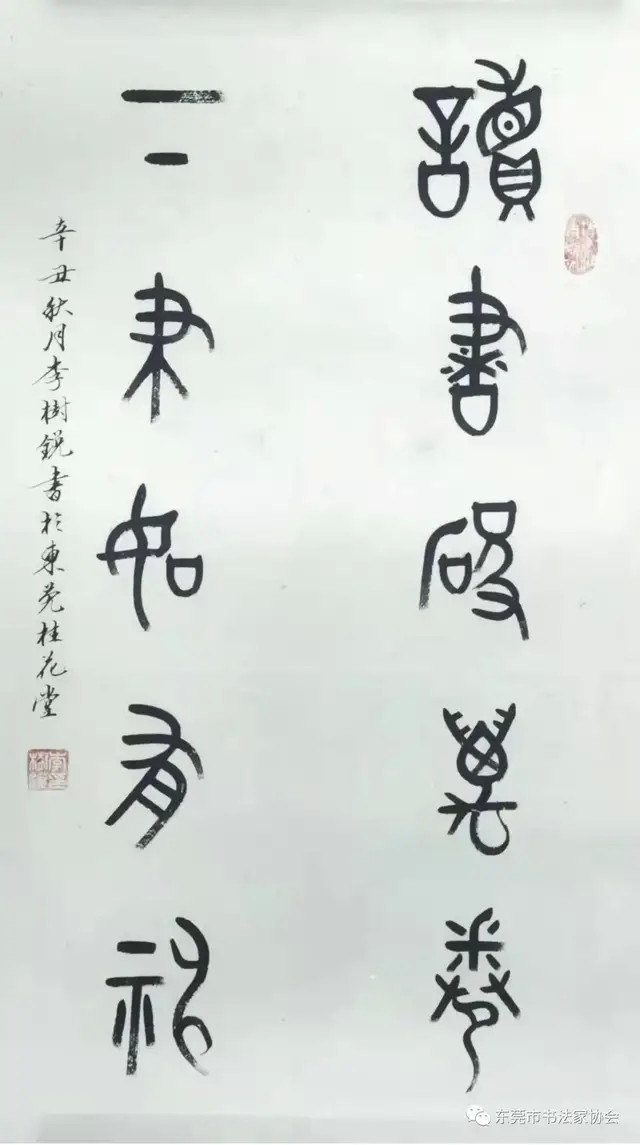 讀書破萬卷
下筆如有神
辛丑秋月李樹鋭書於東莞桂花堂
东莞市书法家协会